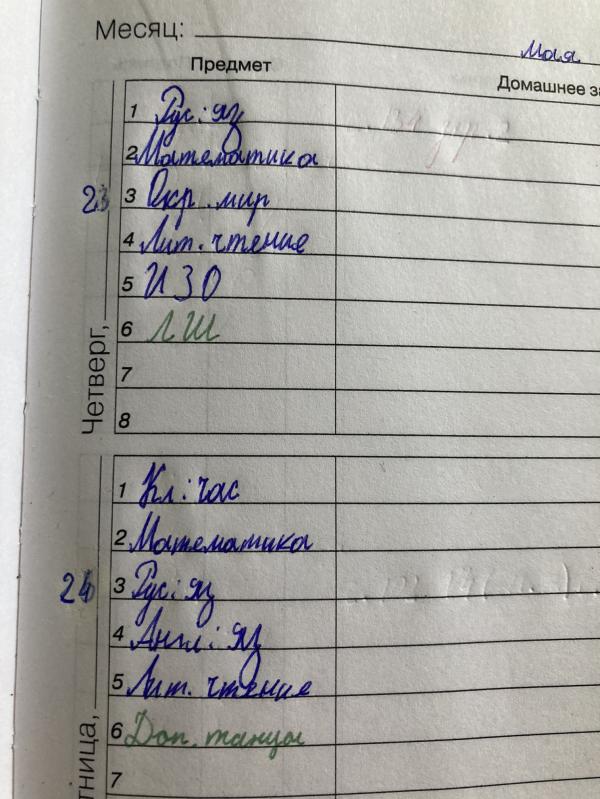 Месяц: Мая
Предмет
Домашнее за
Четверг, 23
1 Рус: яз
2 Математика
3 Окр. мир
4 Лит. чтение
5 ИЗО
6 ЛШ
7
8
тница, 24
1 Кл: час
2 Математика
3 Рус: яз
4 Англ: яз
5 Лит. чтение
6 Доп. танцы
7